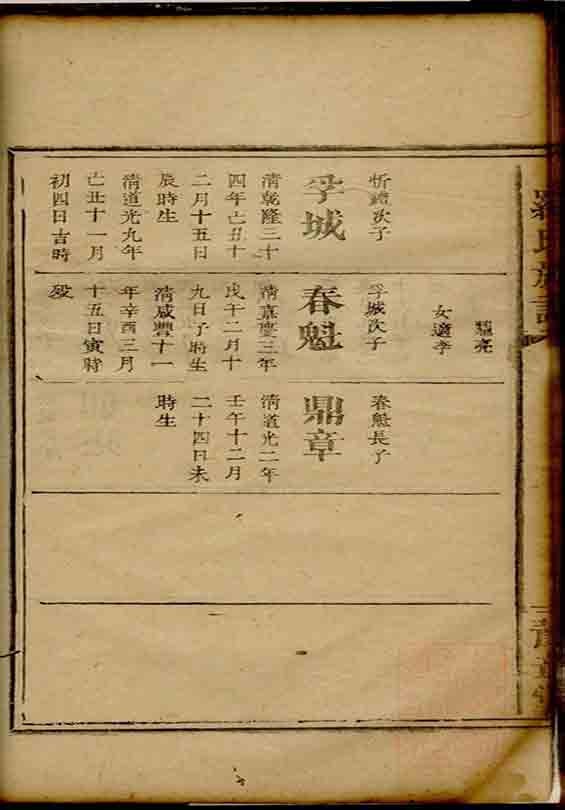 羅氏族譜
豫章堂
忻禮次子
孚城
清乾隆三十
四年己丑十
二月十五日
辰時生
清道光九年
己丑十一月
初四日吉時
亮
女適李
孚城次子
春魁
清嘉慶三年
戊午二月十
九日子時生
清咸豐十一
年辛酉三月
十五日寅時
歿
春魁長子
鼎章
清道光二年
壬午十二月
二十四日未
時生